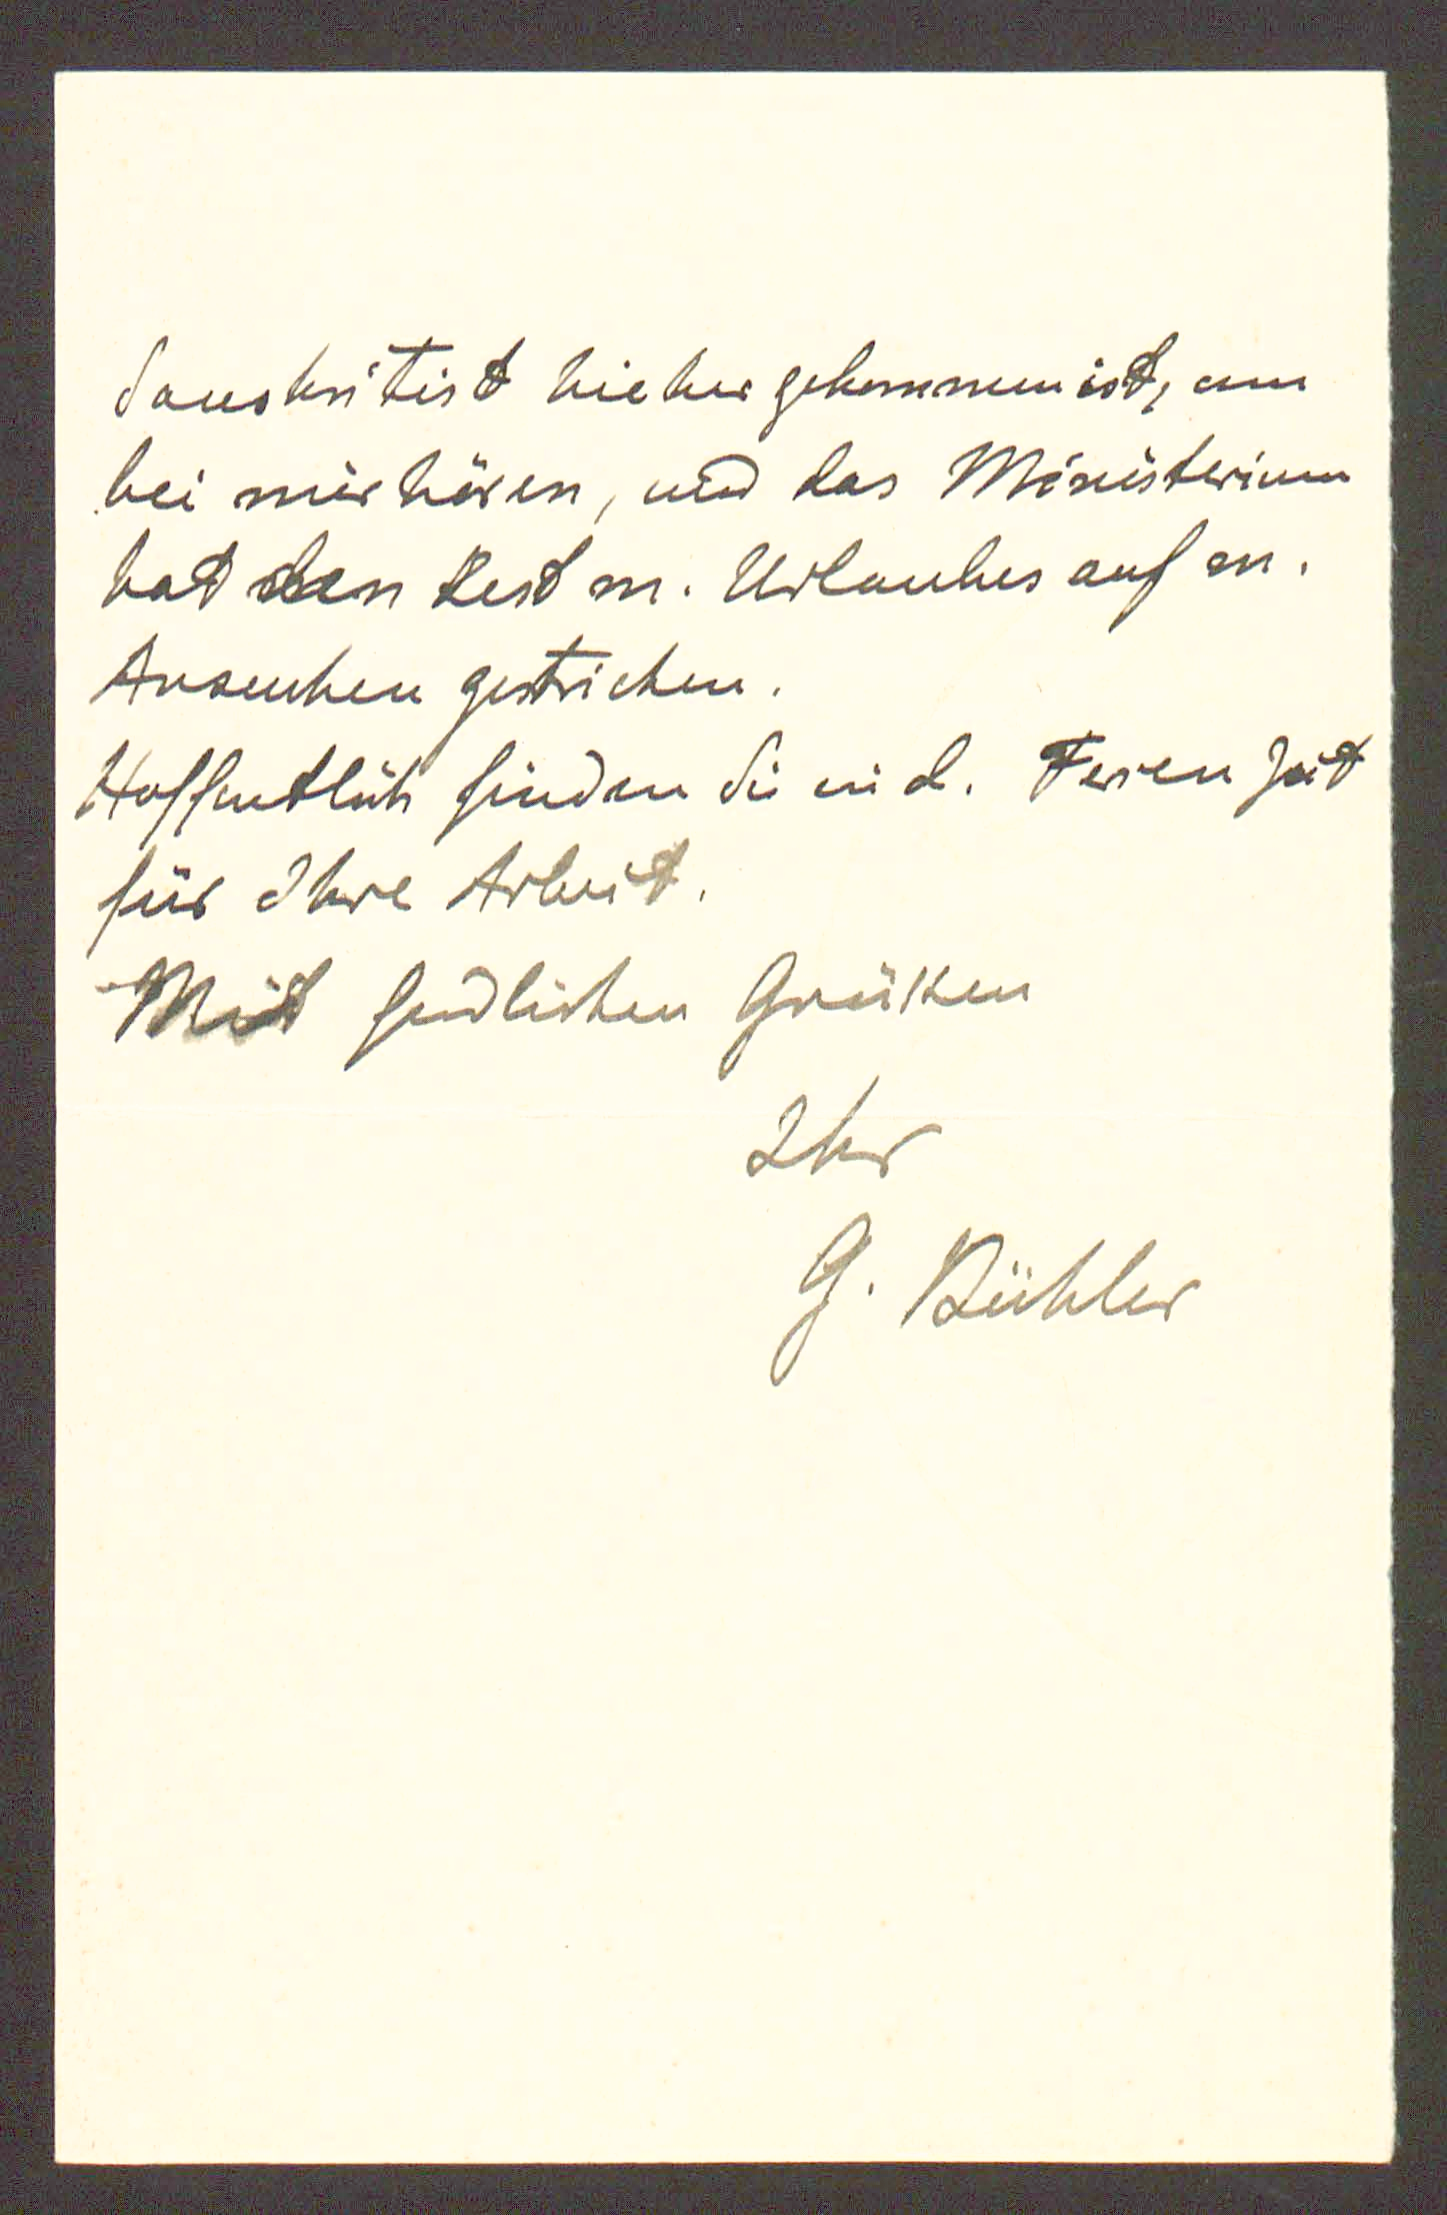 Sanskritist hieher gekommen ist, um
bei mir hören, und das Ministerium
hat den Rest m. Urlaubes auf m.
Ansuchen gestrichen.
Hoffentlich finden Sie in d. Ferien Zeit
für Ihre Arbeit.
Mit frndlichen Grüßen
Ihr
G. Bühler